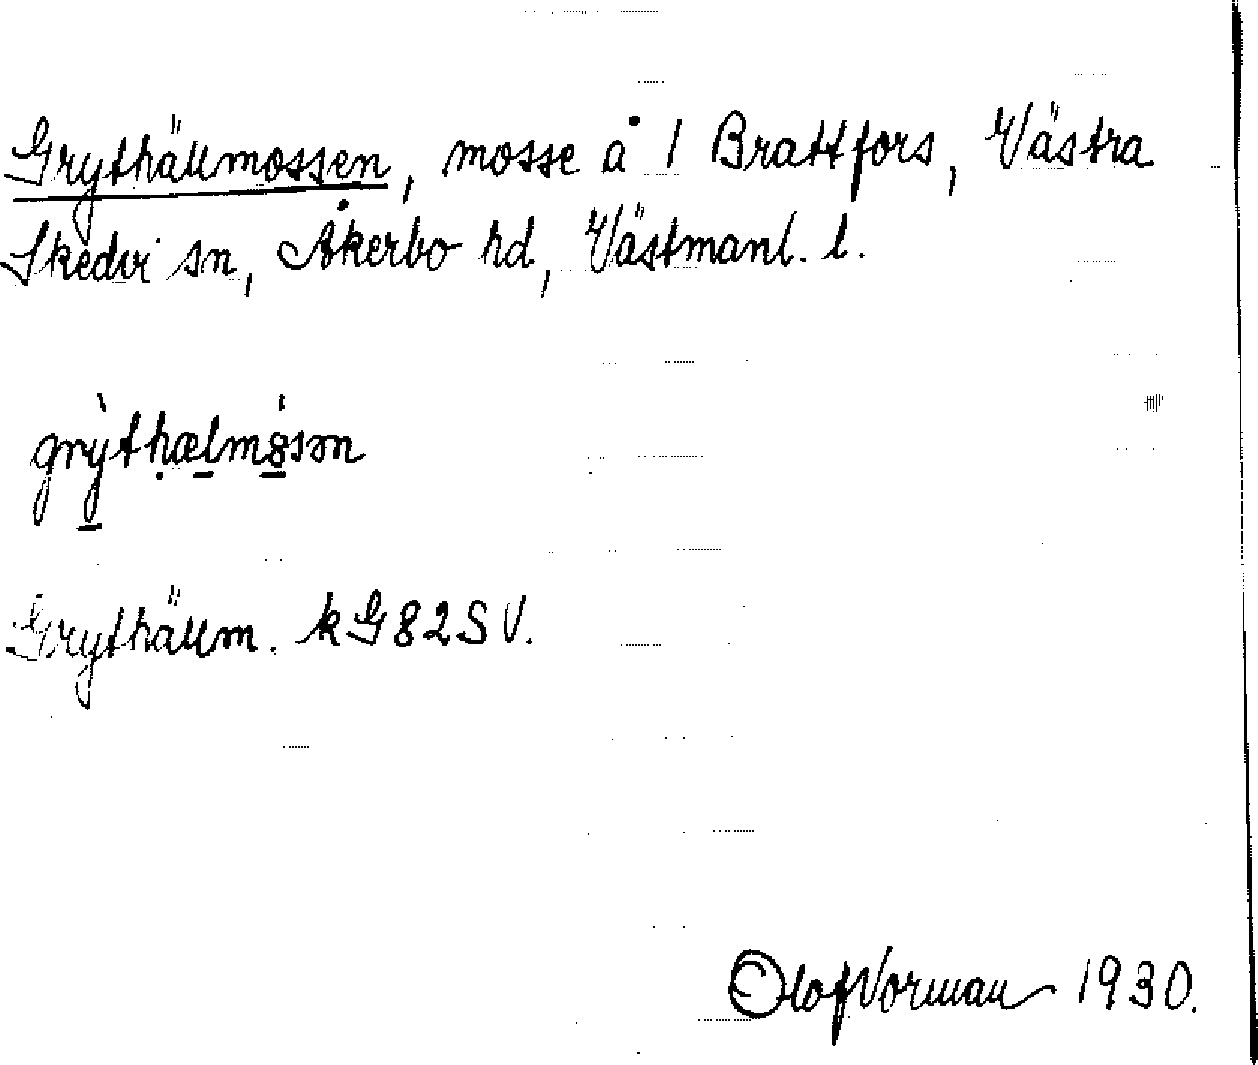 Grythällmossen, mosse å 1 Brattfors, Västra
Skedvi sn, Åkerbo hd, Västmanl. l.
grỳthælmósən
Grythällm. kG82SV.
Olof Vorman 1930.